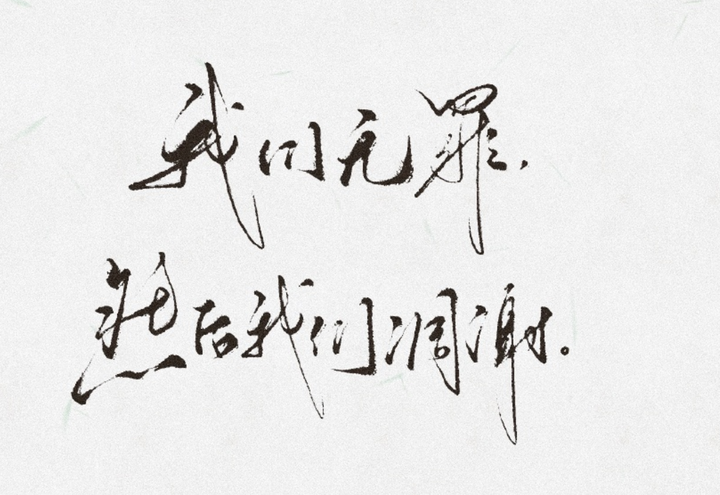 我们无罪，
然后我们凋谢。